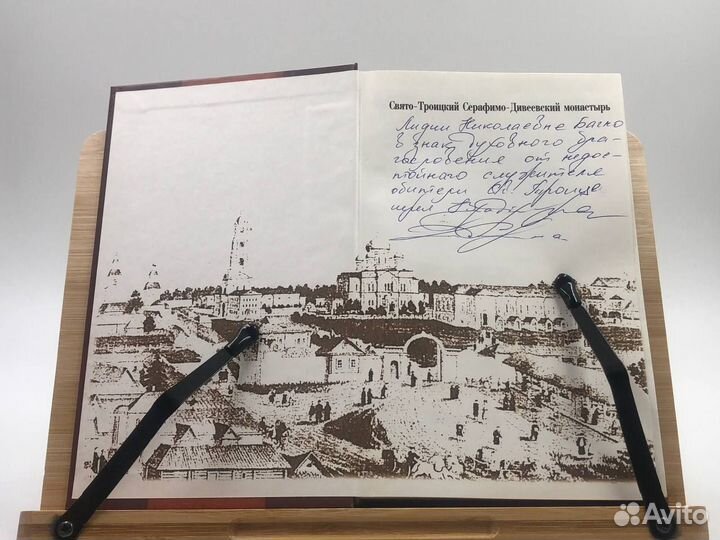 Свято-Троицкий Серафимо-Дивеевский монастырь
Лидии Николаевне
в знак духовного бла-
гословения от недос-
тойнаго служителя
обители Св. Троицы
иерей
Avito